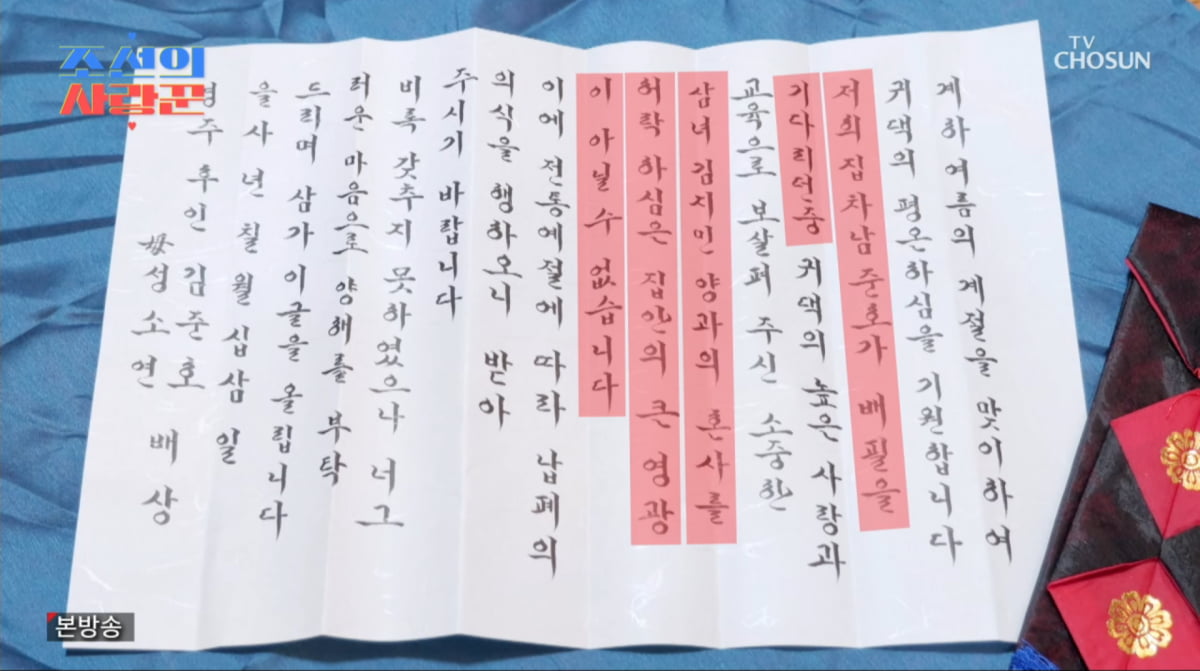 조선의
사랑꾼
TV
CHOSUN
계하 여름의 계절을 맞이하여
귀댁의 평온하심을 기원합니다
저희집 차남 준호가 배필을
기다리던중 귀댁의 높은 사랑과
교육으로 보살펴 주신 소중한
삼녀 김지민 양과의 혼사를
허락 하심은 집안의 큰 영광
이 아닐 수 없습니다
이에 전통예절에 따라 납폐의
의식을 행하오니 받아
주시기 바랍니다
비록 갖추지 못하였으나 너그
러운 마음으로 양해를 부탁
드리며 삼가 이글을 올립니다
을사년 칠월 십삼일
경주 후인 김준호
母 성소연 배상
본방송